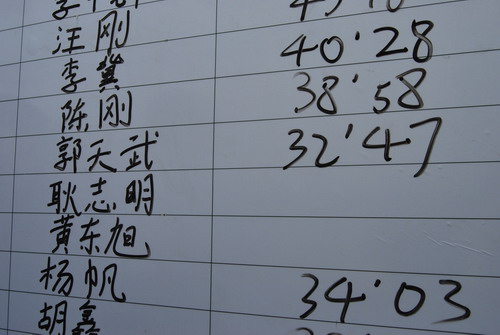 汪刚
李冀 40'28
陈刚 38'58
郭天武 32'47
耿志明
黄东旭
杨帆 34'03
胡鑫